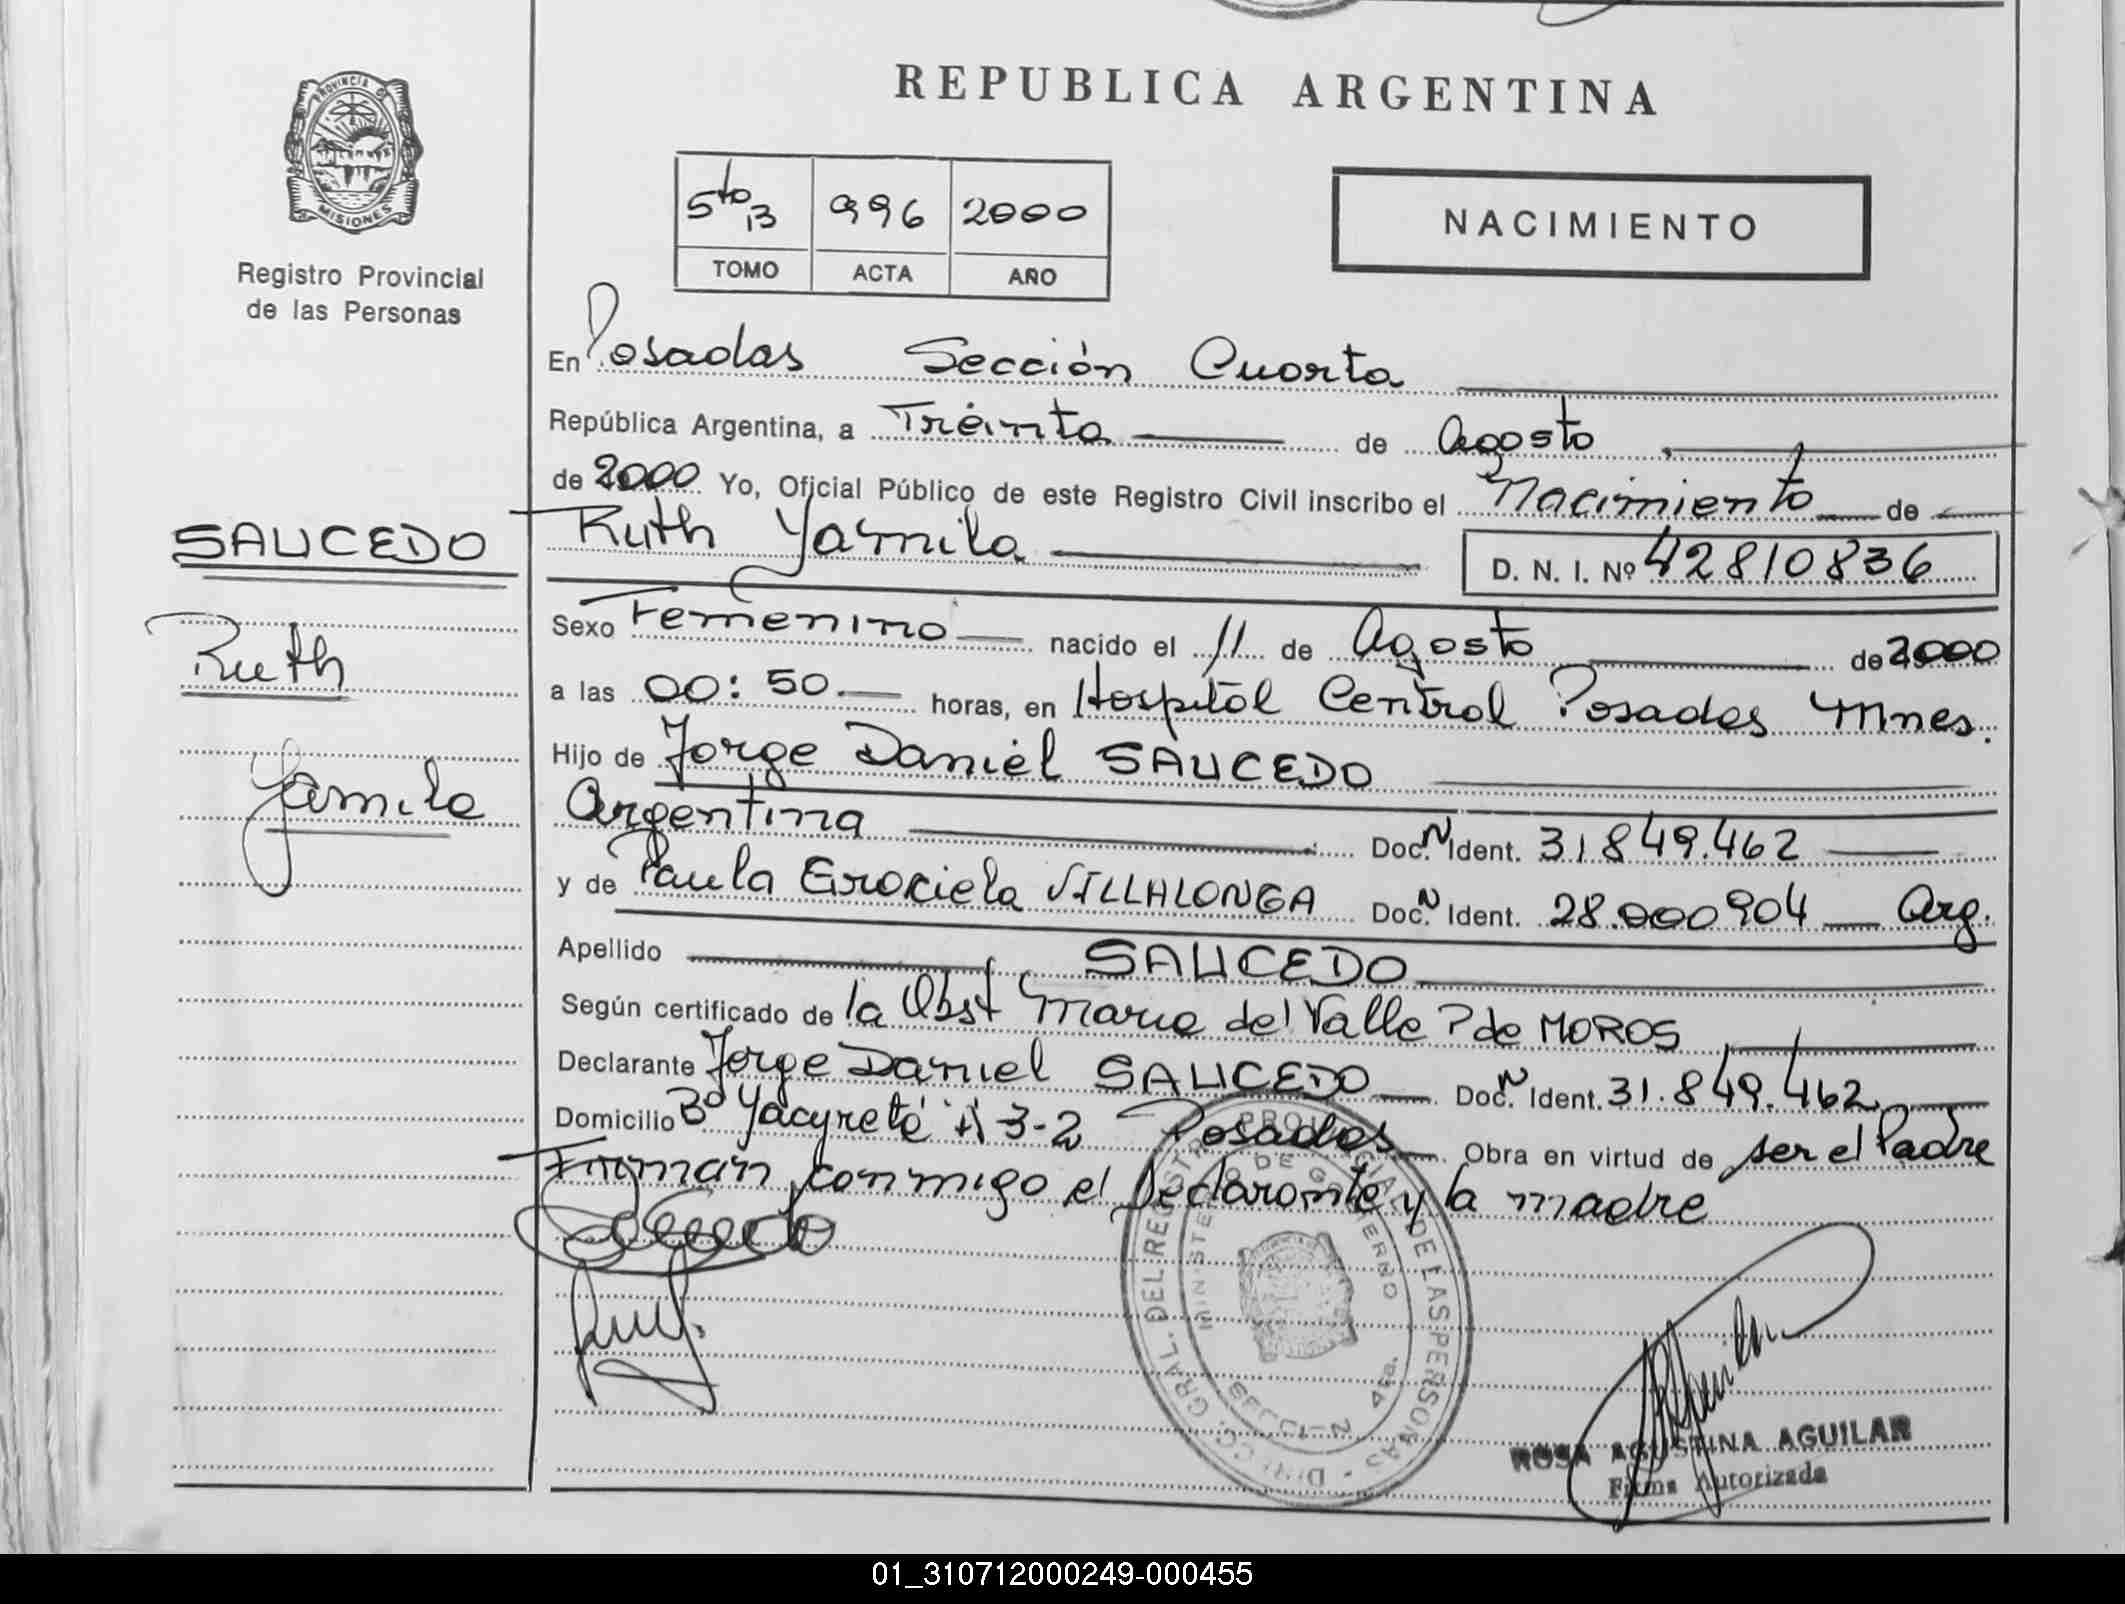 REPUBLICA ARGENTINA
PROVINCIA DE MISIONES
Registro Provincial
de las Personas
5to B 996 2000
TOMO ACTA AÑO
NACIMIENTO
En Posadas Sección Cuarta
República Argentina, a Treinta de Agosto
de 2000 Yo, Oficial Público de este Registro Civil inscribo el Nacimiento de
Ruth Yamila
D. N. I. Nº 42810836
SAUCEDO
Ruth
Yamila
Sexo Femenino nacido el 11 de Agosto de 2000
a las 00:50 horas, en Hospital Central Posadas Mnes.
Hijo de Jorge Daniel SAUCEDO
Argentina Doc. N Ident. 31849.462
y de Paula Graciela VILLALONGA Doc. N Ident. 28.000904 Arg.
Apellido SAUCEDO
Según certificado de la Obst Maria del Valle P de MOROS
Declarante Jorge Daniel SAUCEDO Doc. N Ident. 31.849.462
Domicilio Bº Yacyretá 3-2 Posadas Obra en virtud de ser el Padre
Firman conmigo el Declarante y la madre
DIRECC. GRAL. DEL REGISTRO PROVINCIAL DE LAS PERSONAS
MINISTERIO DE GOBIERNO
SECCION 4ta.
ROSA AGUSTINA AGUILAR
Firma Autorizada
01_310712000249-000455